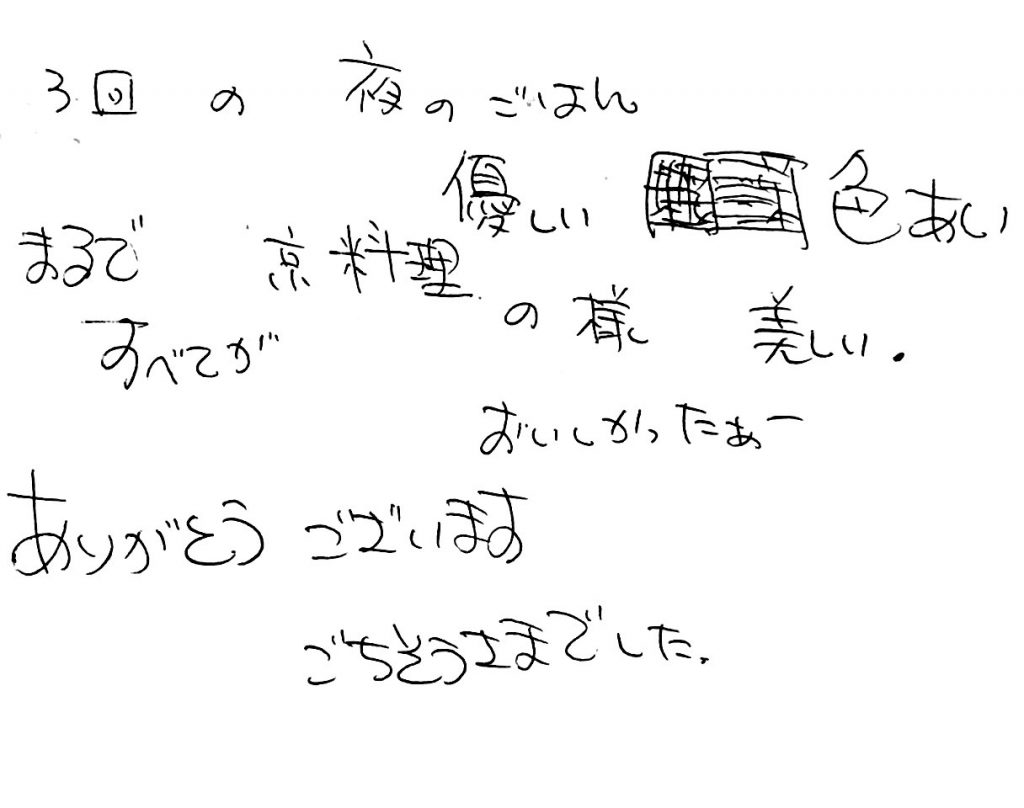 3回の夜のごはん
優しい色あい
まるで京料理の様 美しい.
すべてが
おいしかったぁー
ありがとうございます
ごちそうさまでした.